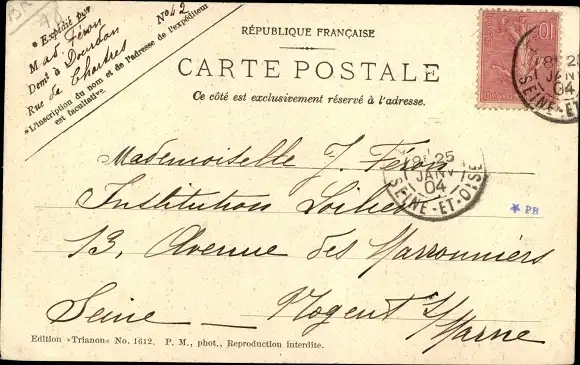 BR
* Expédié par
Mad. Féron
Demt à Dourdan
Rue de Chartres No 42
*L'inscription du nom et de l'adresse de l'expéditeur
est facultative.
RÉPUBLIQUE FRANÇAISE
CARTE POSTALE
Ce côté est exclusivement réservé à l'adresse.
10
25
JANV
04
SEINE-ET-O
Mademoiselle J. Féron
25
JANV
04
SEINE-ET-OISE
Institution
13, Avenue des Marronniers
* PB
Seine — Nogent s/Marne
Edition »Trianon« No. 1612. P. M., phot., Reproduction interdite.